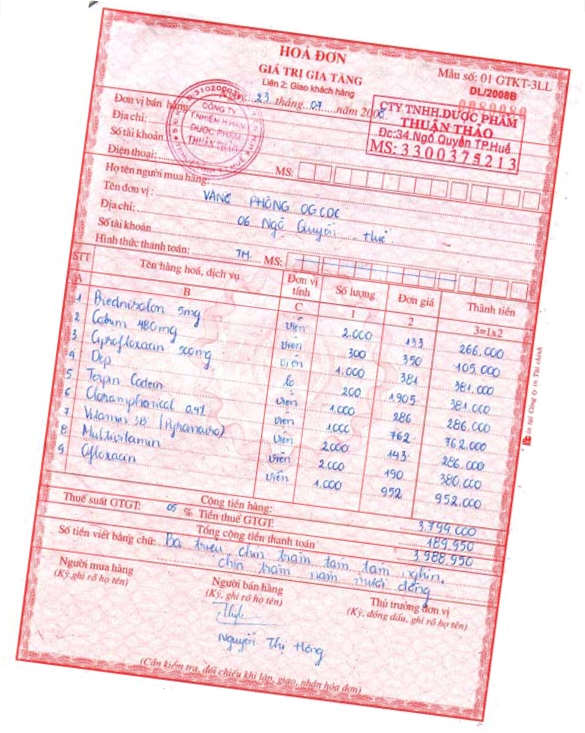 HOÁ ĐƠN
GIÁ TRỊ GIA TĂNG
Liên 2: Giao khách hàng
Mẫu số: 01 GTKT-3LL
DL/2008B
0080080
23 tháng 07 năm 2008
CÔNG TY
TRÁCH NHIỆM HỮU HẠN
DƯỢC PHẨM
THUẬN THẢO
CTY TNHH.DƯỢC PHẨM
THUẬN THẢO
Đc:34.Ngô Quyền TP.Huế
MS: 3300375213
Đơn vị bán hàng
Địa chỉ:
Số tài khoản
Điện thoại: MS:
Họ tên người mua hàng:
Tên đơn vị: VĂNG PHÒNG OGCDC
Địa chỉ: 06 Ngô Quyền - Huế.
Số tài khoản
Hình thức thanh toán: TM. MS:
STT Tên hàng hoá, dịch vụ Đơn vị tính Số lượng Đơn giá Thành tiền
A B C 1 2 3=1x2
1 Prednisolon 5mg viên 2.000 133 266.000
2 Cotrim 480mg viên 300 350 105.000
3 Ciprofloxacin 500mg viên 1.000 381 381.000
4 Dep lọ 200 1.905 381.000
5 Terpin Codein viên 1.000 286 286.000
6 Cloramphenical 0.4% 1.000 762 762.000
7 Vitamin 3B viên 2000 143 286.000
8 Multivitamin viên 2.000 190 380.000
9 Ofloxacin viên 1.000 952 952.000
Cộng tiền hàng: 3.799.000
Thuế suất GTGT: 05 % Tiền thuế GTGT: 189.950
Tổng cộng tiền thanh toán 3.988.950
Số tiền viết bằng chữ: Ba triệu, chín trăm tám tám nghìn,
chín trăm năm mươi đồng
Người mua hàng Người bán hàng Thủ trưởng đơn vị
(Ký, ghi rõ họ tên) (Ký, ghi rõ họ tên) (Ký, đóng dấu, ghi rõ họ tên)
Nguyễn Thị Hồng
(Cần kiểm tra, đối chiếu khi lập, giao, nhận hóa đơn)
In tại Công ty in Tài chính